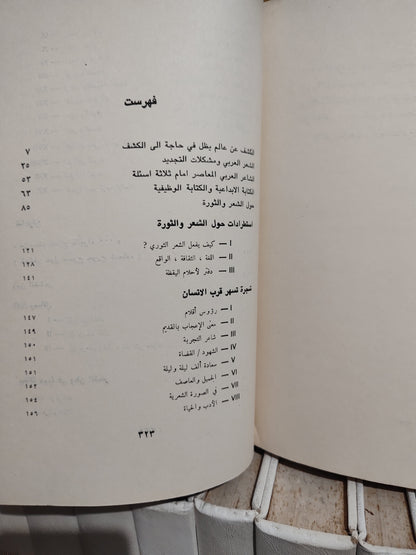 فهرست
الكشف عن عالم يظل في حاجة الى الكشف ٧
الشعر العربي ومشكلات التجديد ٢٥
الشاعر العربي المعاصر امام ثلاثة اسئلة ٥٣
الكتابة الابداعية والكتابة الوظيفية ٦٣
حول الشعر والثورة ٨٥
استطرادات حول الشعر والثورة
I — كيف يفعل الشعر الثوري ؟ ١٢١
II — اللغة ، الثقافة ، الواقع ١٢٨
III — دفتر لأحلام اليقظة ١٤١
شجرة تسهر قرب الانسان
I — رؤوس أقلام ١٤٧
II — معنى الإعجاب بالقديم ١٤٩
III — شاعر التجربة ١٥٠
IV — الشهود / القضاة ١٥٠
V — سعادة ألف ليلة وليلة ١٥١
VI — الجميل والعاصف ١٥٢
VII — في الصورة الشعرية ١٥٤
VIII — الأدب والحياة ١٥٦
٣٢٣